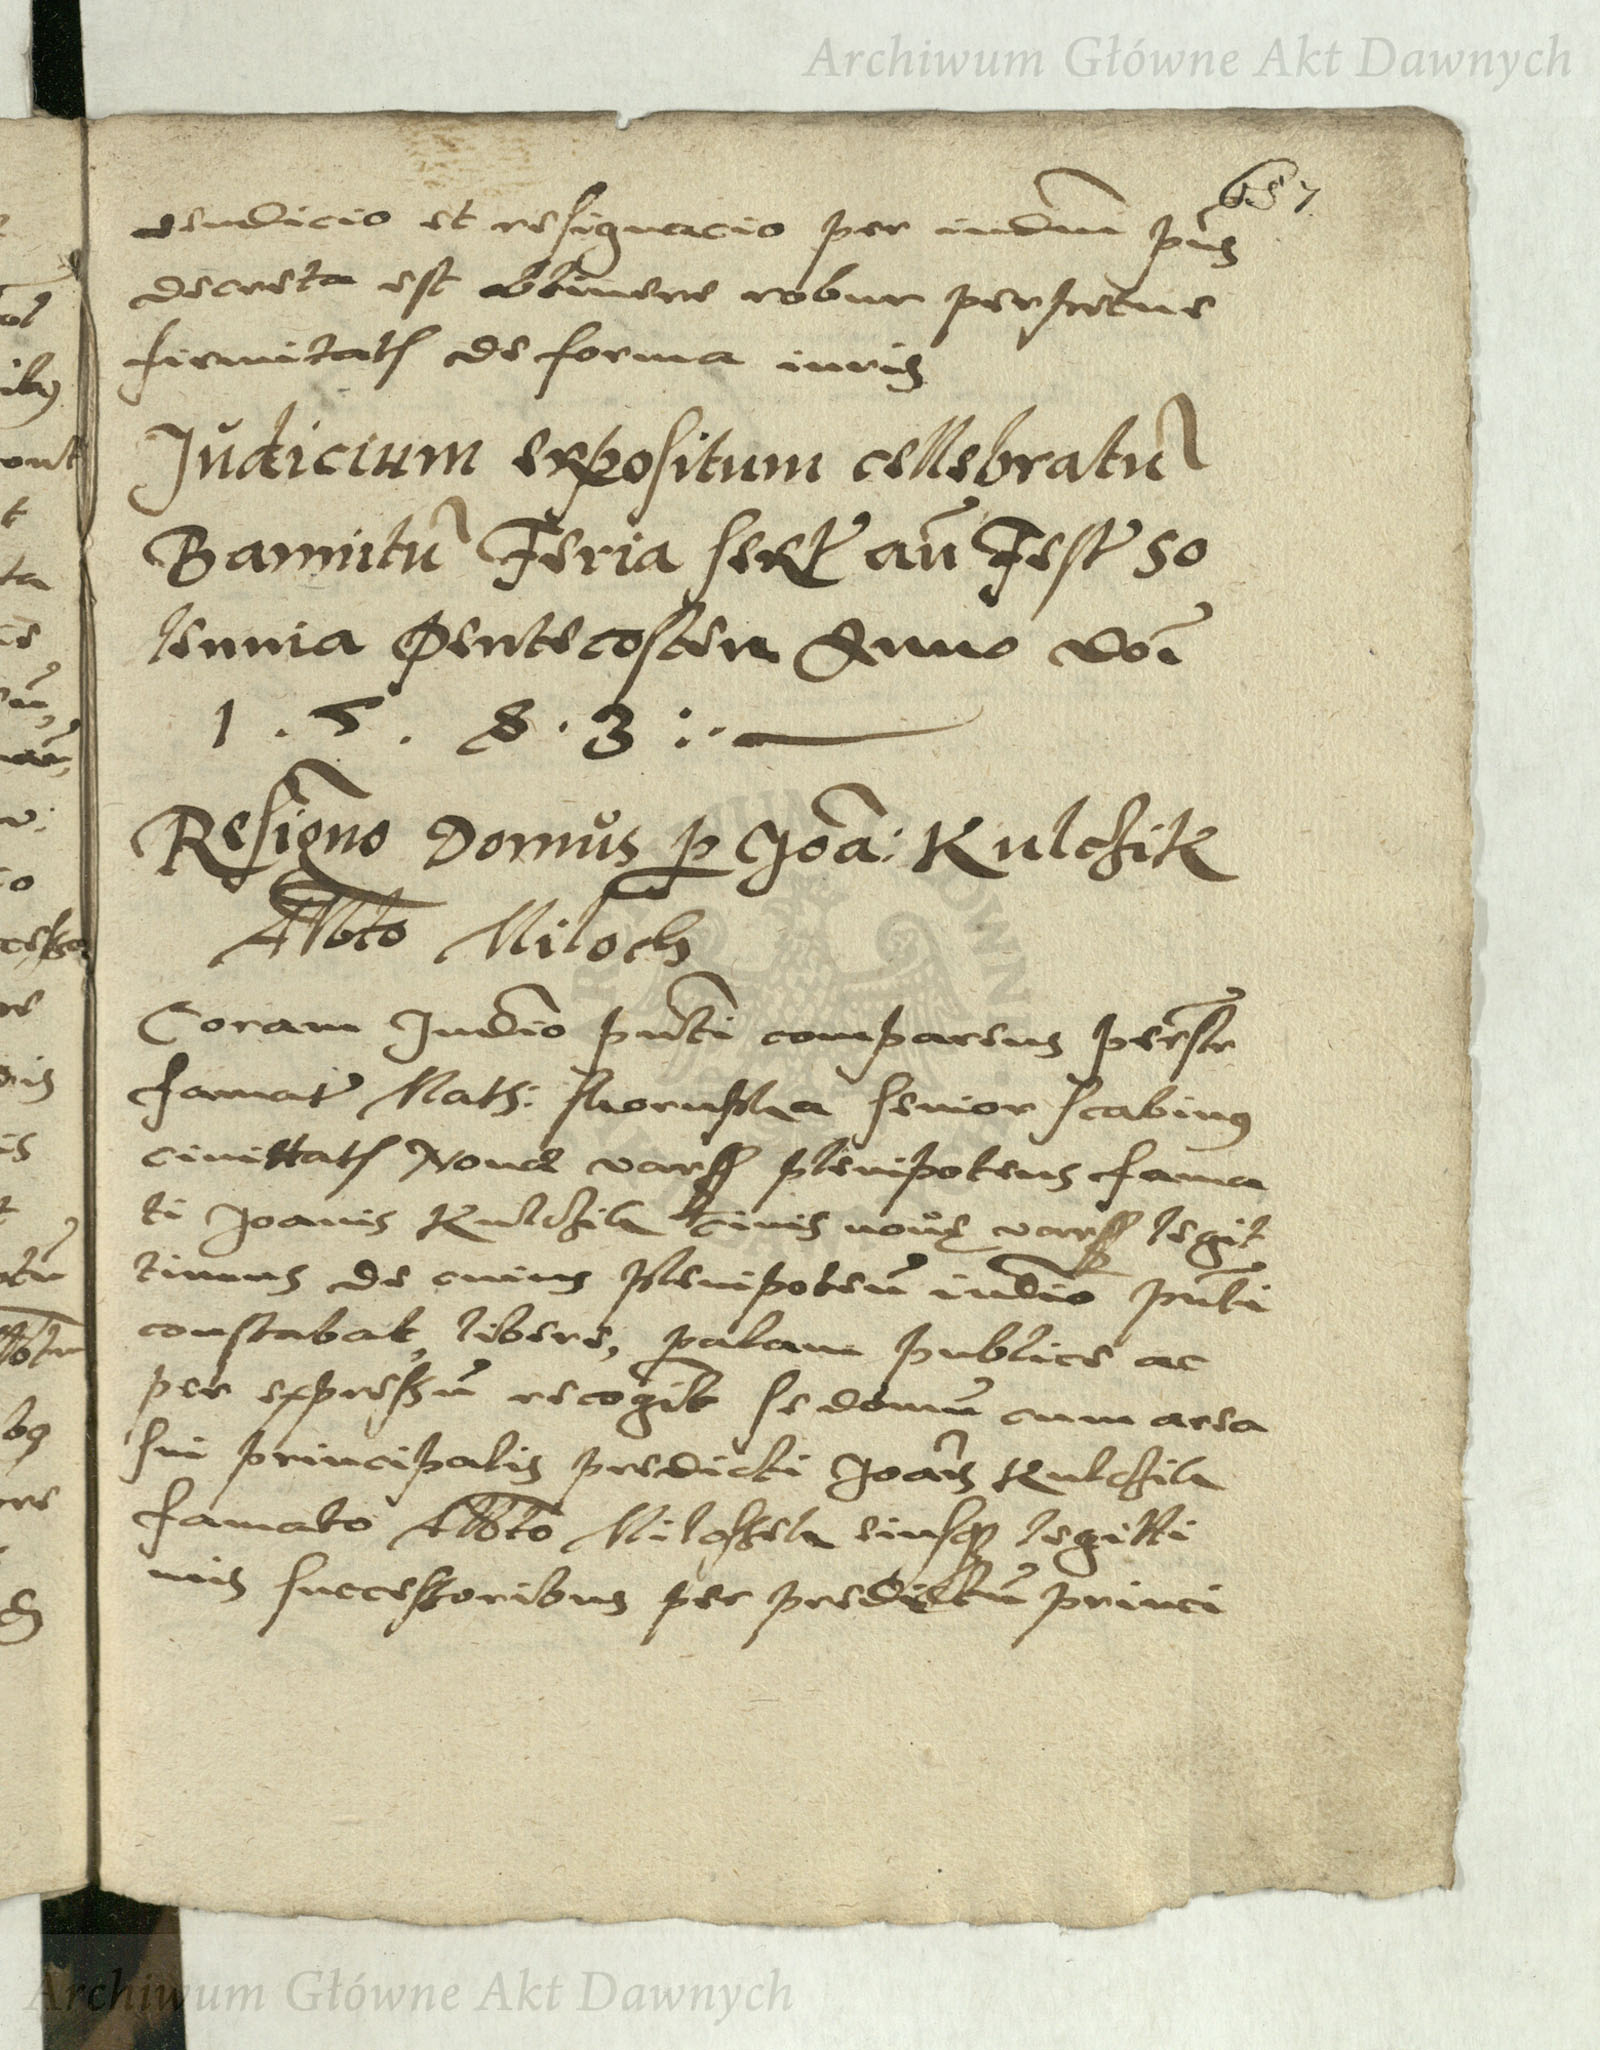 Archiwum Główne Akt Dawnych
657
vendicio et resignacio per iudm pns
decreta est obtinere robur perpetue
firmitatis de forma iuris
Judicium expositum cellebratu
Bannitu Feria sexta an Festa so
lennia Pentecosten Anno doi
1 . 5 . 8 . 3 : .
Resigno Domus p Joa: Kulczik
Albto Miloch
Coram Judio pnti comparens perstr
famat Math: senior scabinus
civittatis Nove Vars plenipotens fama
ti Joanis Kulczik civis nove vars legit
timus de cuius plenipoten iudio pnti
constabat, libere, palam publice ac
per expressu recognit se domu cum area
sui principalis predicti Joanis Kulczik
famato Albto eiusq legitti
mis successoribus per predictu princi
Archiwum Główne Akt Dawnych